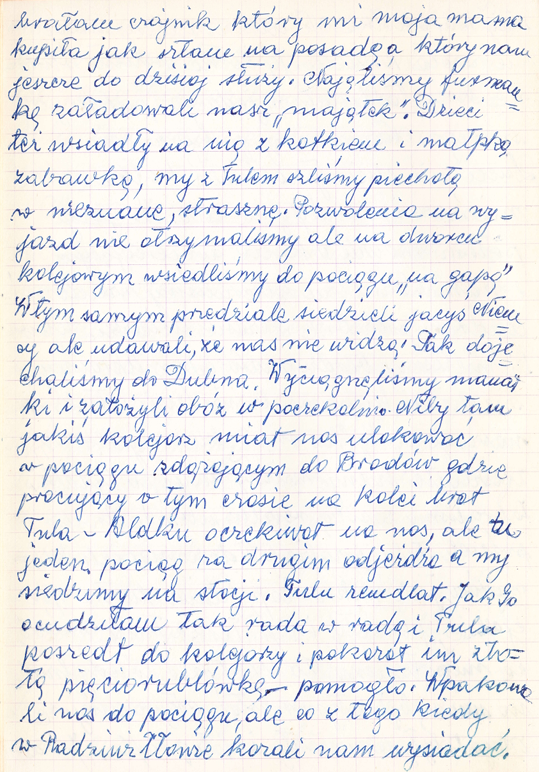 brałam czajnik który mi moja mama
kupiła jak szłam na posadę a który nam
jeszcze do dzisiaj służy. Najęliśmy furman=
kę załadowali nasz „majątek". Dzieci
też wsiadły na nią z kotkiem i małpką
zabawką, my z Tulem szliśmy piechotą
w nieznane, straszne. Pozwolenia na wy=
jazd nie otrzymaliśmy ale na dworcu
kolejowym wsiedliśmy do pociągu „na gapę"
W tym samym przedziale siedzieli jacyś Niem=
cy ale udawali, że nas nie widzą! Tak doje=
chaliśmy do Dubna. Wyciągnęliśmy manat
ki i założyli obóz w poczekalni. Niby tam
jakiś kolejarz miał nas ulokować
w pociągu zdążającym do Brodów gdzie
pracujący w tym czasie na kolei brat
Tula – Aldku oczekiwał na nas, ale tu
jeden pociąg za drugim odjeżdża a my
siedzimy na stacji. Tulu zemdlał. Jak Go
ocudziłam tak rada w radę i Tulu
poszedł do kolejarzy i pokazał im zło=
tą pięciorublówkę – pomogło. Wpakowa
li nas do pociągu, ale co z tego kiedy
w Radziwiłłowie kazali nam wysiadać.